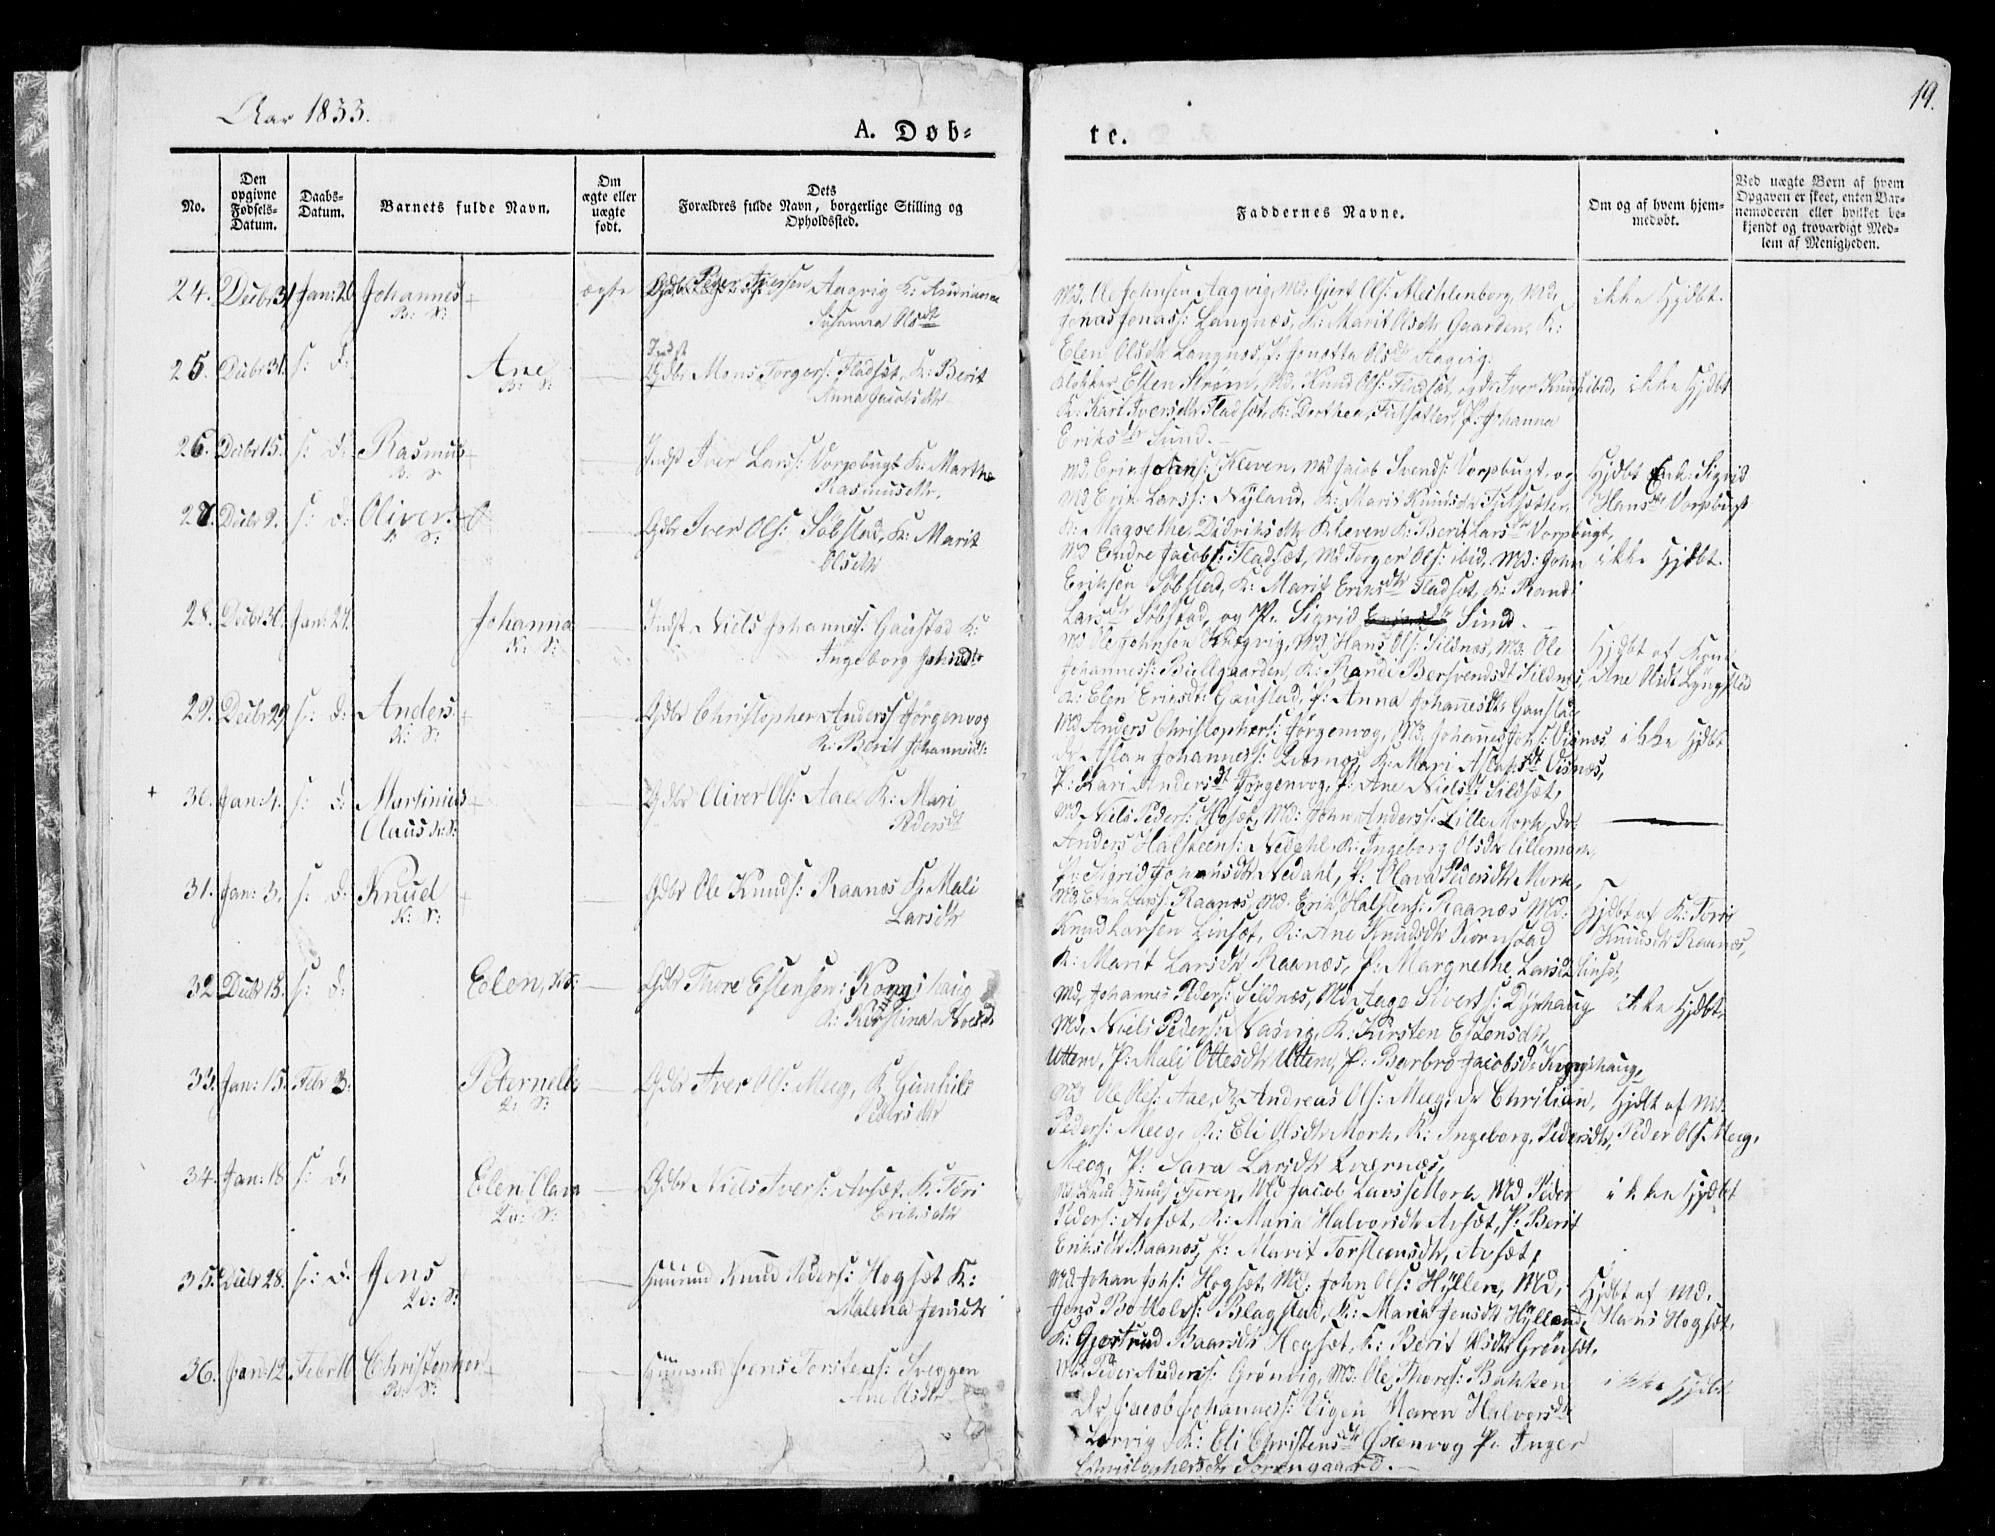 Aar 1833.
19.
A. Døb=
te.
No.
Den opgivne Fødsels-Datum.
Daabs-Datum.
Barnets fulde Navn.
Om ægte eller uægte født.
Dets Forældres fulde Navn, borgerlige Stilling og Opholdssted.
Faddernes Navne.
Om og af hvem hjemmedøbt.
Ved uægte Børn af hvem Opgaven er skeet, enten Barnemoderen eller hvilket bekjendt og troværdigt Medlem af Menigheden.
24. Decbr 31 Jan: 20 Johannes ægte Gdbr Peder Iversen Aagvig K:
Susanna Olsdt
Md. Ole Johnsen Aagvig, Md: Gjert Ols: Mechlenborg, Md.
Jonas Jonass: Langnæs, K: Marit Olsdtr Gaarden, K:
Elen Olsdtr Langnæs, P: Olsdtr Aagvig.
ikke Hjdbt.
25. Decbr 31. s: d: Ane
Gdbr Mons Torgers: Fladsæt, K: Berit
Anna Jacobsdtr
Klokker Esten Strøm, Md. Knud Ols: Fladsæt, og dr Iver Knuds: ibid,
K: Kari Iversdtr Fladsæt, K: Dorthea P: Johanna
Eriksdtr Sund.
ikke Hjdbt
26. Decbr 15. s: d: Rasmus
Indst Iver Lars: Vorpbugt K: Marthe
Rasmusdtr.
Md. Erik Johns: Kleven, Md Jacob Svends: Vorpbugt, og
Md Erik Larss: Nyland, K: Maris Knudsdtr
K: Magrethe Didriksdtr Kleven K: Berit Larsdtr Vorpbugt,
Hjdbt Enk: Sigrid
Hansdtr Vorpbugt
27. Decbr 9. s: d: Oliver
Gdbr Iver Ols: Søbstad, K: Marit
Olsdtr
Md Endre Jacobs: Fladsæt, Md Torger Ols: ibid, Md: John
Eriksen Søbstad, K: Marit Eriksdtr Fladsæt, K: Randi
Larsdtr Søbstad, og P. Sigrid Sund.
ikke Hjdbt.
28. Decbr 30. Jan: 27. Johanna
Indst Niels Johannes: Gaustad K:
Ingeborg Johnsdtr
Md Ole Johnsen Md Hans Ols: Sildnæs, Md: Ole
Johanness: K: Randi Bersvendsdt Sildnæs,
K: Elen Ericsdt: Gaustad, P: Anna Johannesdtr Gaustad
Hjdbt af Kone
Ane Lyngstad
29. Decbr 29 s: d: Anders
Gdbr Christopher Anderss Jørgenvog
K: Berit Johannesdt:
Md Anders Christophers: Jørgenvog, Md: Johannes Johs: Visnæs
dr Aslak Johanness: Qværnæs, K: Mari Aslaksdt Visnæs,
P: Kari Andersdt Jørgenvog, P: Ane Nielsdt Sildsæt,
ikke Hjdbt
30. Jan: 4. s: d: Martinius
Claus
Gdbr Oliver Ols: Aae K: Mari
Pedersdt
Md Niels Peders: Hosæt, Md: John Anderss: Lille Mork, dr
Anders Halsteens: Nedahl, K: Ingeborg Olsdtr Lillemork,
P: Sigrid Johnsdtr Nedahl, P: Olava Pedersdtr Mork,
31. Jan: 3. s: d: Knud
Gdbr Ole Knuds: Raanes K: Mali
Larsdtr
Md. Erik Larss: Raanæs, Md. Erik Halstens: Raanæs Md:
Knud Larsen Linsæt, K: Ane Knudsdtr Biørnstad
K: Marit Larsdtr Raanæs, P: Margrethe Larsdt Linsæt,
Hjdbt af K: Tori
Knudsdtr Raanæs,
32. Decbr 15. s: d: Elen
Gdbr Thore Estensen: Kongshaug
K: Kirstina
Md, Johannes Peders: Sildnæs, Md Aage Siverts: Dyrhaug
Md, Niels Peders: Nasvig, K: Kirsten Estensdtr,
Uttem, P: Mali Ottesdtr Uttem, P: Barbro Jacobsdt Kongshaug,
ikke Hjdbt,
33. Jan: 15. Febr 3. Peternelle
Gdbr Iver Ols: Meeg, K Gunhild
Pedersdtr
Md Ole Ols: Aae, dr Andreas Ols: Meeg, dr Christian,
Peders: Meeg, K: Eli Olsdtr Mork, K: Ingeborg Pedersdtr,
Meeg, P: Sara Larsdtr Qværnæs,
Hjdbt af Md.
Peder Ols Meeg,
34. Jan: 18. s: d: Elen Olava
Gdbr Niels Ivers: Avsæt, K: Tori
Eriksdtr
Md Knud Knuds Fieren, Md Jacob Larss: Mork, Md Peder
Peders: Avsæt, K: Maria Halvorsdtr Avsæt, P: Berit
Eriksdtr Raanæs, P: Marit Torsteensdtr, Avsæt,
ikke Hjdbt
35. Decbr 28. s: d: Jens
Huusmd Knud Peders: Hogsæt K:
Malena Jensdtr
Md. Johan Johs: Hogsæt, Md: John Ols: Hyllen, Md,
Jens Bottolvs: Blagstad, K: Maria Jensdtr Hyllend
K: Gjertrud Baarsdtr Hogsæt, K: Berit Olsdtr Grønset.
Hjdbt af Md.
Hans Hogsæt.
36. Jan: 12. Febr 10 Christopher
Huusmd Jens Torstens: Sveggen
Ane Olsdtr
Md: Peder Anders: Grønvig, Md: Ole Thores: Bakken
dr Jacob Johanness: Vigen Maren Halvorsdtr
Lervig K: Eli Christensdtr Oxenvog P. Inger
Christophersdtr Sorengaard.
ikke Hjdbt